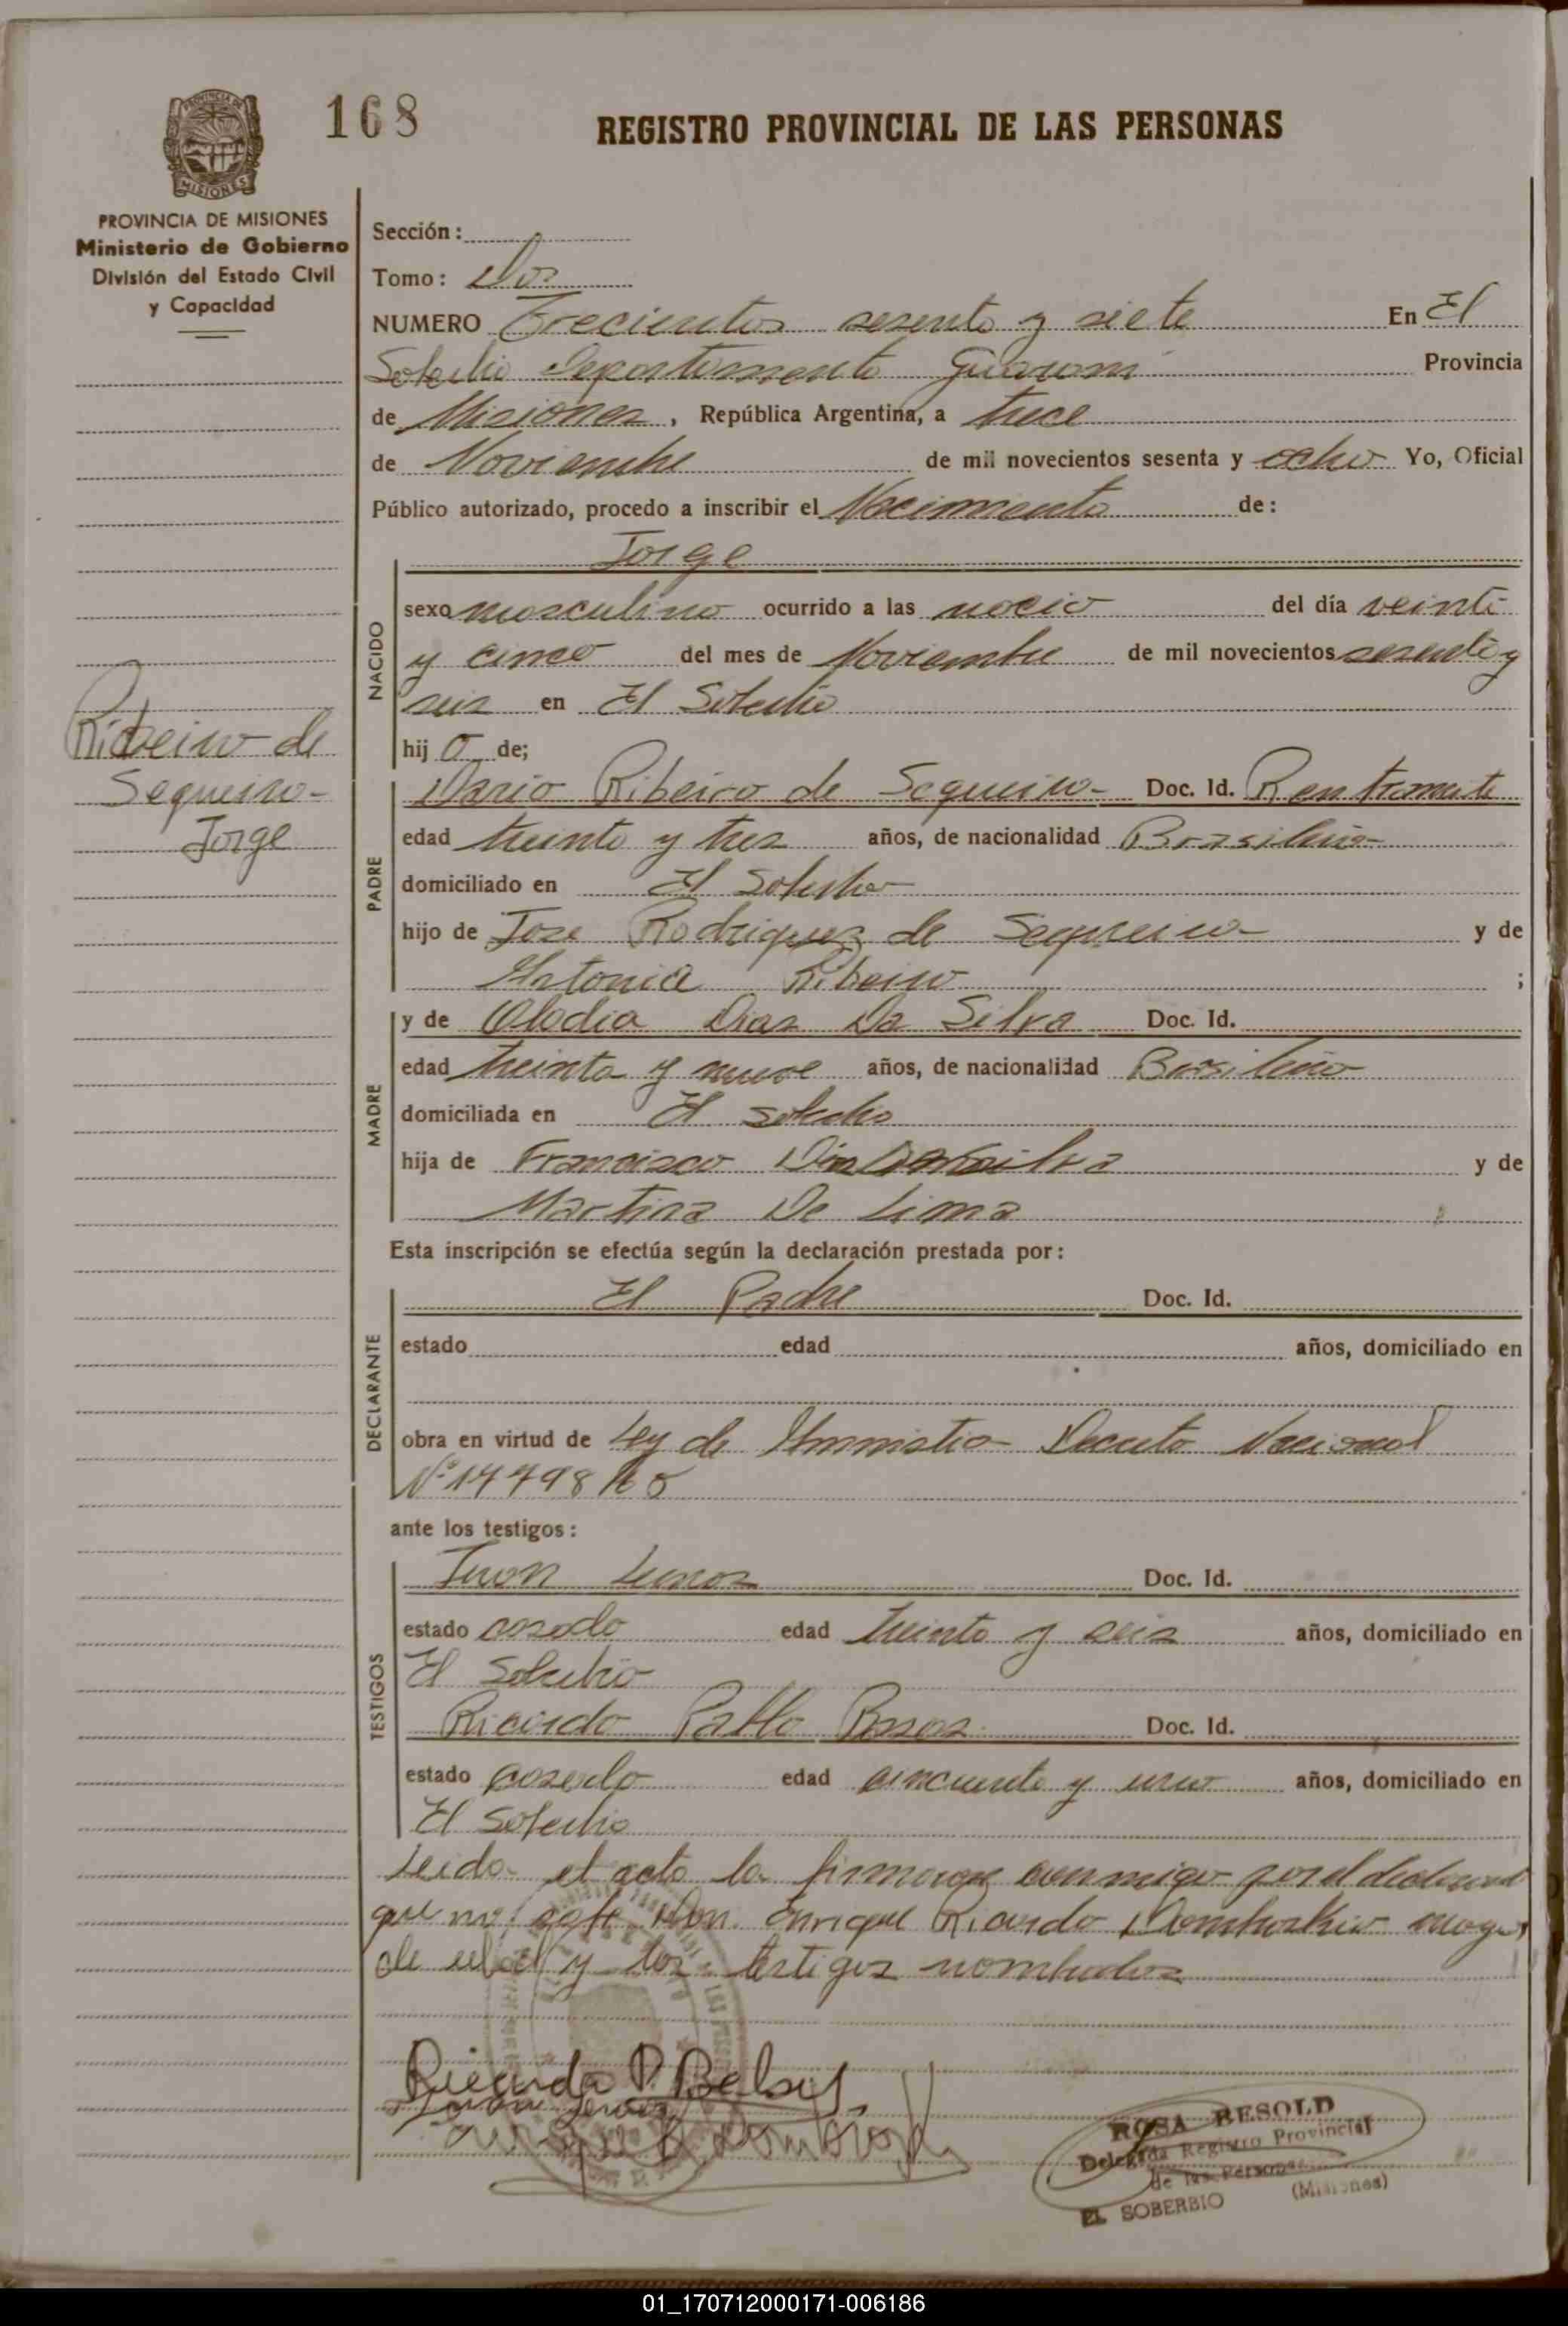 168
REGISTRO PROVINCIAL DE LAS PERSONAS
PROVINCIA DE MISIONES
Ministerio de Gobierno
División del Estado Civil
y Capacidad
Sección:
Tomo: Dos
NUMERO Trecientos sesenta y siete En El
Soberbio Departamento Guarani Provincia
de Misiones, República Argentina, a trece
de Noviembre de mil novecientos sesenta y ocho Yo, Oficial
Público autorizado, procedo a inscribir el Nacimiento de:
Jorge
NACIDO
sexo masculino ocurrido a las del día veinti
y cinco del mes de Noviembre de mil novecientos sesenta y
seis en El Soberbio
hijo de;
Ribeiro de
Sequeira-
Jorge
PADRE
Dario Ribeiro de Sequeira- Doc. Id.
edad treinta y tres años, de nacionalidad Brasileña
domiciliado en El Soberbio
hijo de Jose Rodriguez de Sequeira y de
Antonia Ribeiro ;
MADRE
y de Olodia Diaz Da Silva Doc. Id.
edad treinta y nueve años, de nacionalidad Brasileña
domiciliada en El Soberbio
hija de Francisco y de
Martina De Lima
Esta inscripción se efectúa según la declaración prestada por:
DECLARANTE
El Padre Doc. Id.
estado edad años, domiciliado en
obra en virtud de Ley de Amnistia Decreto Nacional
ante los testigos:
TESTIGOS
Juan Lemos Doc. Id.
estado casado edad treinta y seis años, domiciliado en
El Soberbio
Ricardo Pablo Doc. Id.
estado casado edad cincuenta y uno años, domiciliado en
El Soberbio
Leida el acta la conmigo por el
que no Don Enrique Ricardo
de edad y los testigos nombrados
Ricardo P.
ROSA RESOLD
Delegada Registro Provincial
de las Personas
EL SOBERBIO (Misiones)
01_170712000171-006186